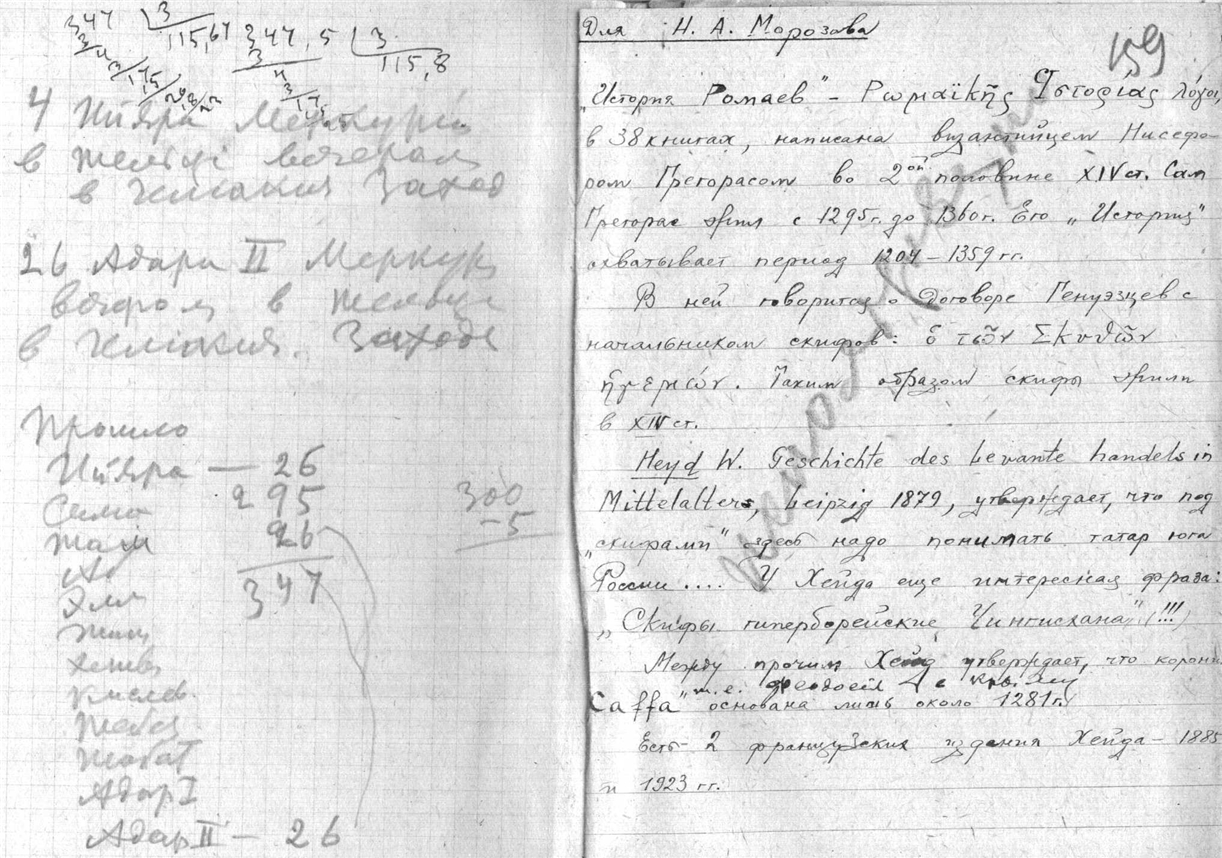 347 | 3
115,67
347,5 | 3
115,8
4 Ийяра Меркурий
в вечером
в Заход
26 Адара II Меркур
в
в Заходе
Прошло
Ийяра — 26
295
26
347
300
-5
Адар I
Адар II — 26
Для Н. А. Морозова
159
„История Ромаев" – Ρωμαϊκῆς Ἱστορίας λόγοι,
в 38 книгах, написана византийцем Нисефо-
ром Грегорасом во 2ой половине XIV ст. Сам
Грегорас жил с 1295 г. до 1360 г. Его „История"
охватывает период 1204 – 1359 гг.
В ней говорится о договоре Генуэзцев с
начальником скифов: ὁ τῶν Σκυθῶν
ἡγεμών. Таким образом скифы жили
в XIV ст.
Heyd W. Geschichte des Levante handels in
Mittelalters, Leipzig 1879, утверждает, что под
„скифами" здесь надо понимать татар юга
России .... У Хейда еще интересная фраза:
„Скифы гиперборейские Чингисхана" (!!!)
Между прочим Хейд утверждает, что колони
т.е. Феодосия в Крыму
Caffa" основана лишь около 1281 г.
Есть 2 французских издания Хейда – 1885
и 1923 гг.